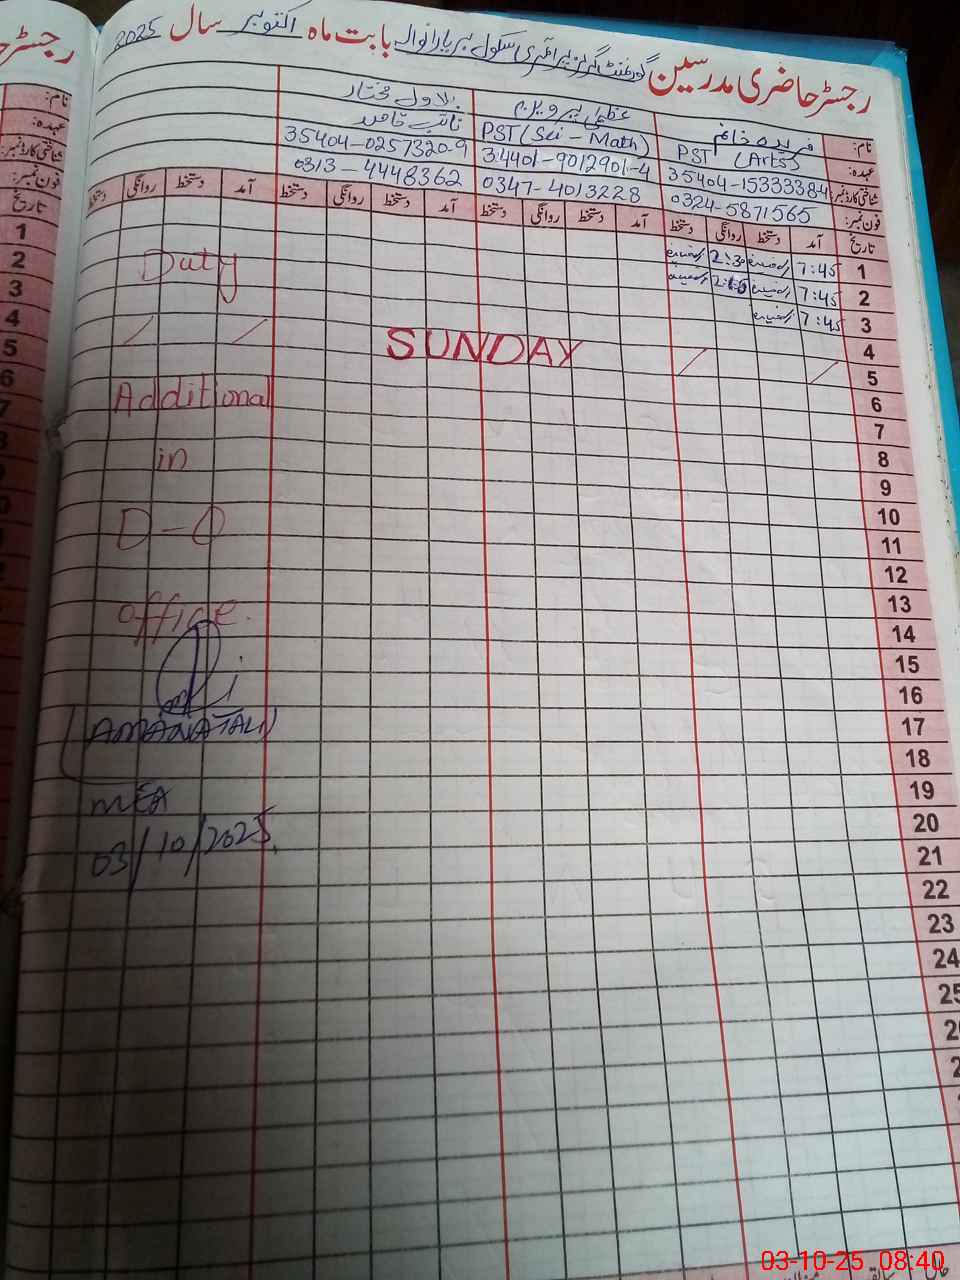 رجسٹر حاضری مدرسین گورنمنٹ گرلز پرائمری سکول ہریارانوالہ بابت ماہ اکتوبر سال 2025
نام: فریدہ خانم
عہدہ: PST (Arts)
شناختی کارڈ نمبر: 35404-1533338-4
فون نمبر: 0324-5871565
عظمیٰ پرویز
PST (Sci - Math)
34401-9012901-4
0347-4013228
بلاول مختار
نائب قاصد
35404-0257320-9
0313-4448362
تاریخ آمد دستخط روانگی دستخط آمد دستخط روانگی دستخط آمد دستخط روانگی دستخط آمد دستخط روانگی دستخط
1 7:45 2:30
2 7:45
3 7:45
4
5
SUNDAY
6
7
8
9
10
11
12
13
14
15
16
17
18
19
20
21
22
23
24
25
Duty
Additional
in
D-O
office.
(AMANAT ALI)
MEA
03/10/2025
رجسٹر
نام:
عہدہ:
شناختی کارڈ نمبر:
فون نمبر:
تاریخ
1
2
3
4
5
6
7
03-10-25 08:40